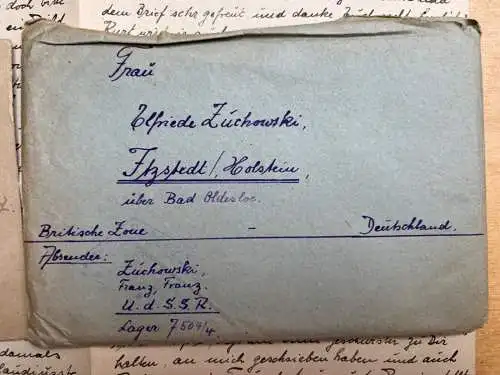 dem Brief sehr gefreut und danke
Frau
Elfriede Zuchowski,
Itzstedt/Holstein
über Bad Oldesloe.
Britische Zone - Deutschland.
Absender:
Zuchowski,
Franz, Franz.
U.d.S.S.R.
Lager 7504/4
zu Dir
halten, an mich geschrieben haben und auch
damals